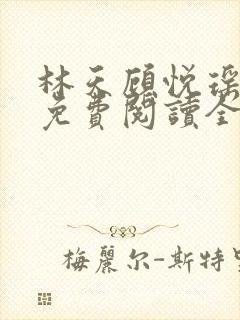 林天顾悦瑶
免費閱讀全
梅麗尔-斯特